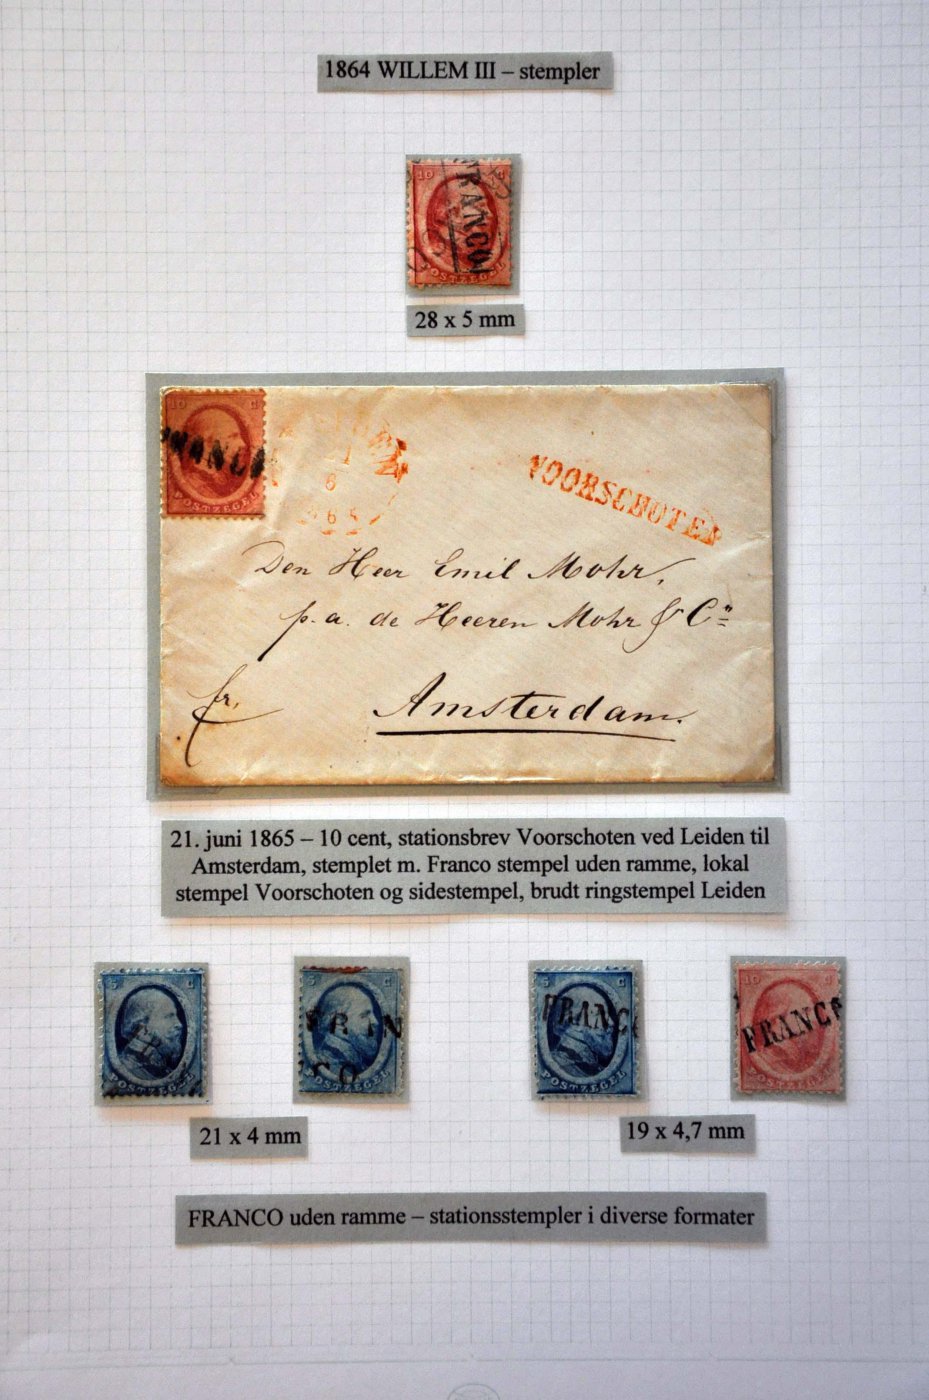 1864 WILLEM III – stempler
10 C
FRANCO
POSTZEGEL
28 x 5 mm
10 C
FRANCO
POSTZEGEL
21
6
65
VOORSCHOTEN
Den Heer Emil Mohr,
p. a. de Heeren Mohr & Co
fr.
Amsterdam.
21. juni 1865 – 10 cent, stationsbrev Voorschoten ved Leiden til
Amsterdam, stemplet m. Franco stempel uden ramme, lokal
stempel Voorschoten og sidestempel, brudt ringstempel Leiden
5 C
FRA
POSTZEGEL
5 C
FRAN
CO
POSTZEGEL
5 C
FRANC
POSTZEGEL
10 C
FRANCO
POSTZEGEL
21 x 4 mm
19 x 4,7 mm
FRANCO uden ramme – stationsstempler i diverse formater